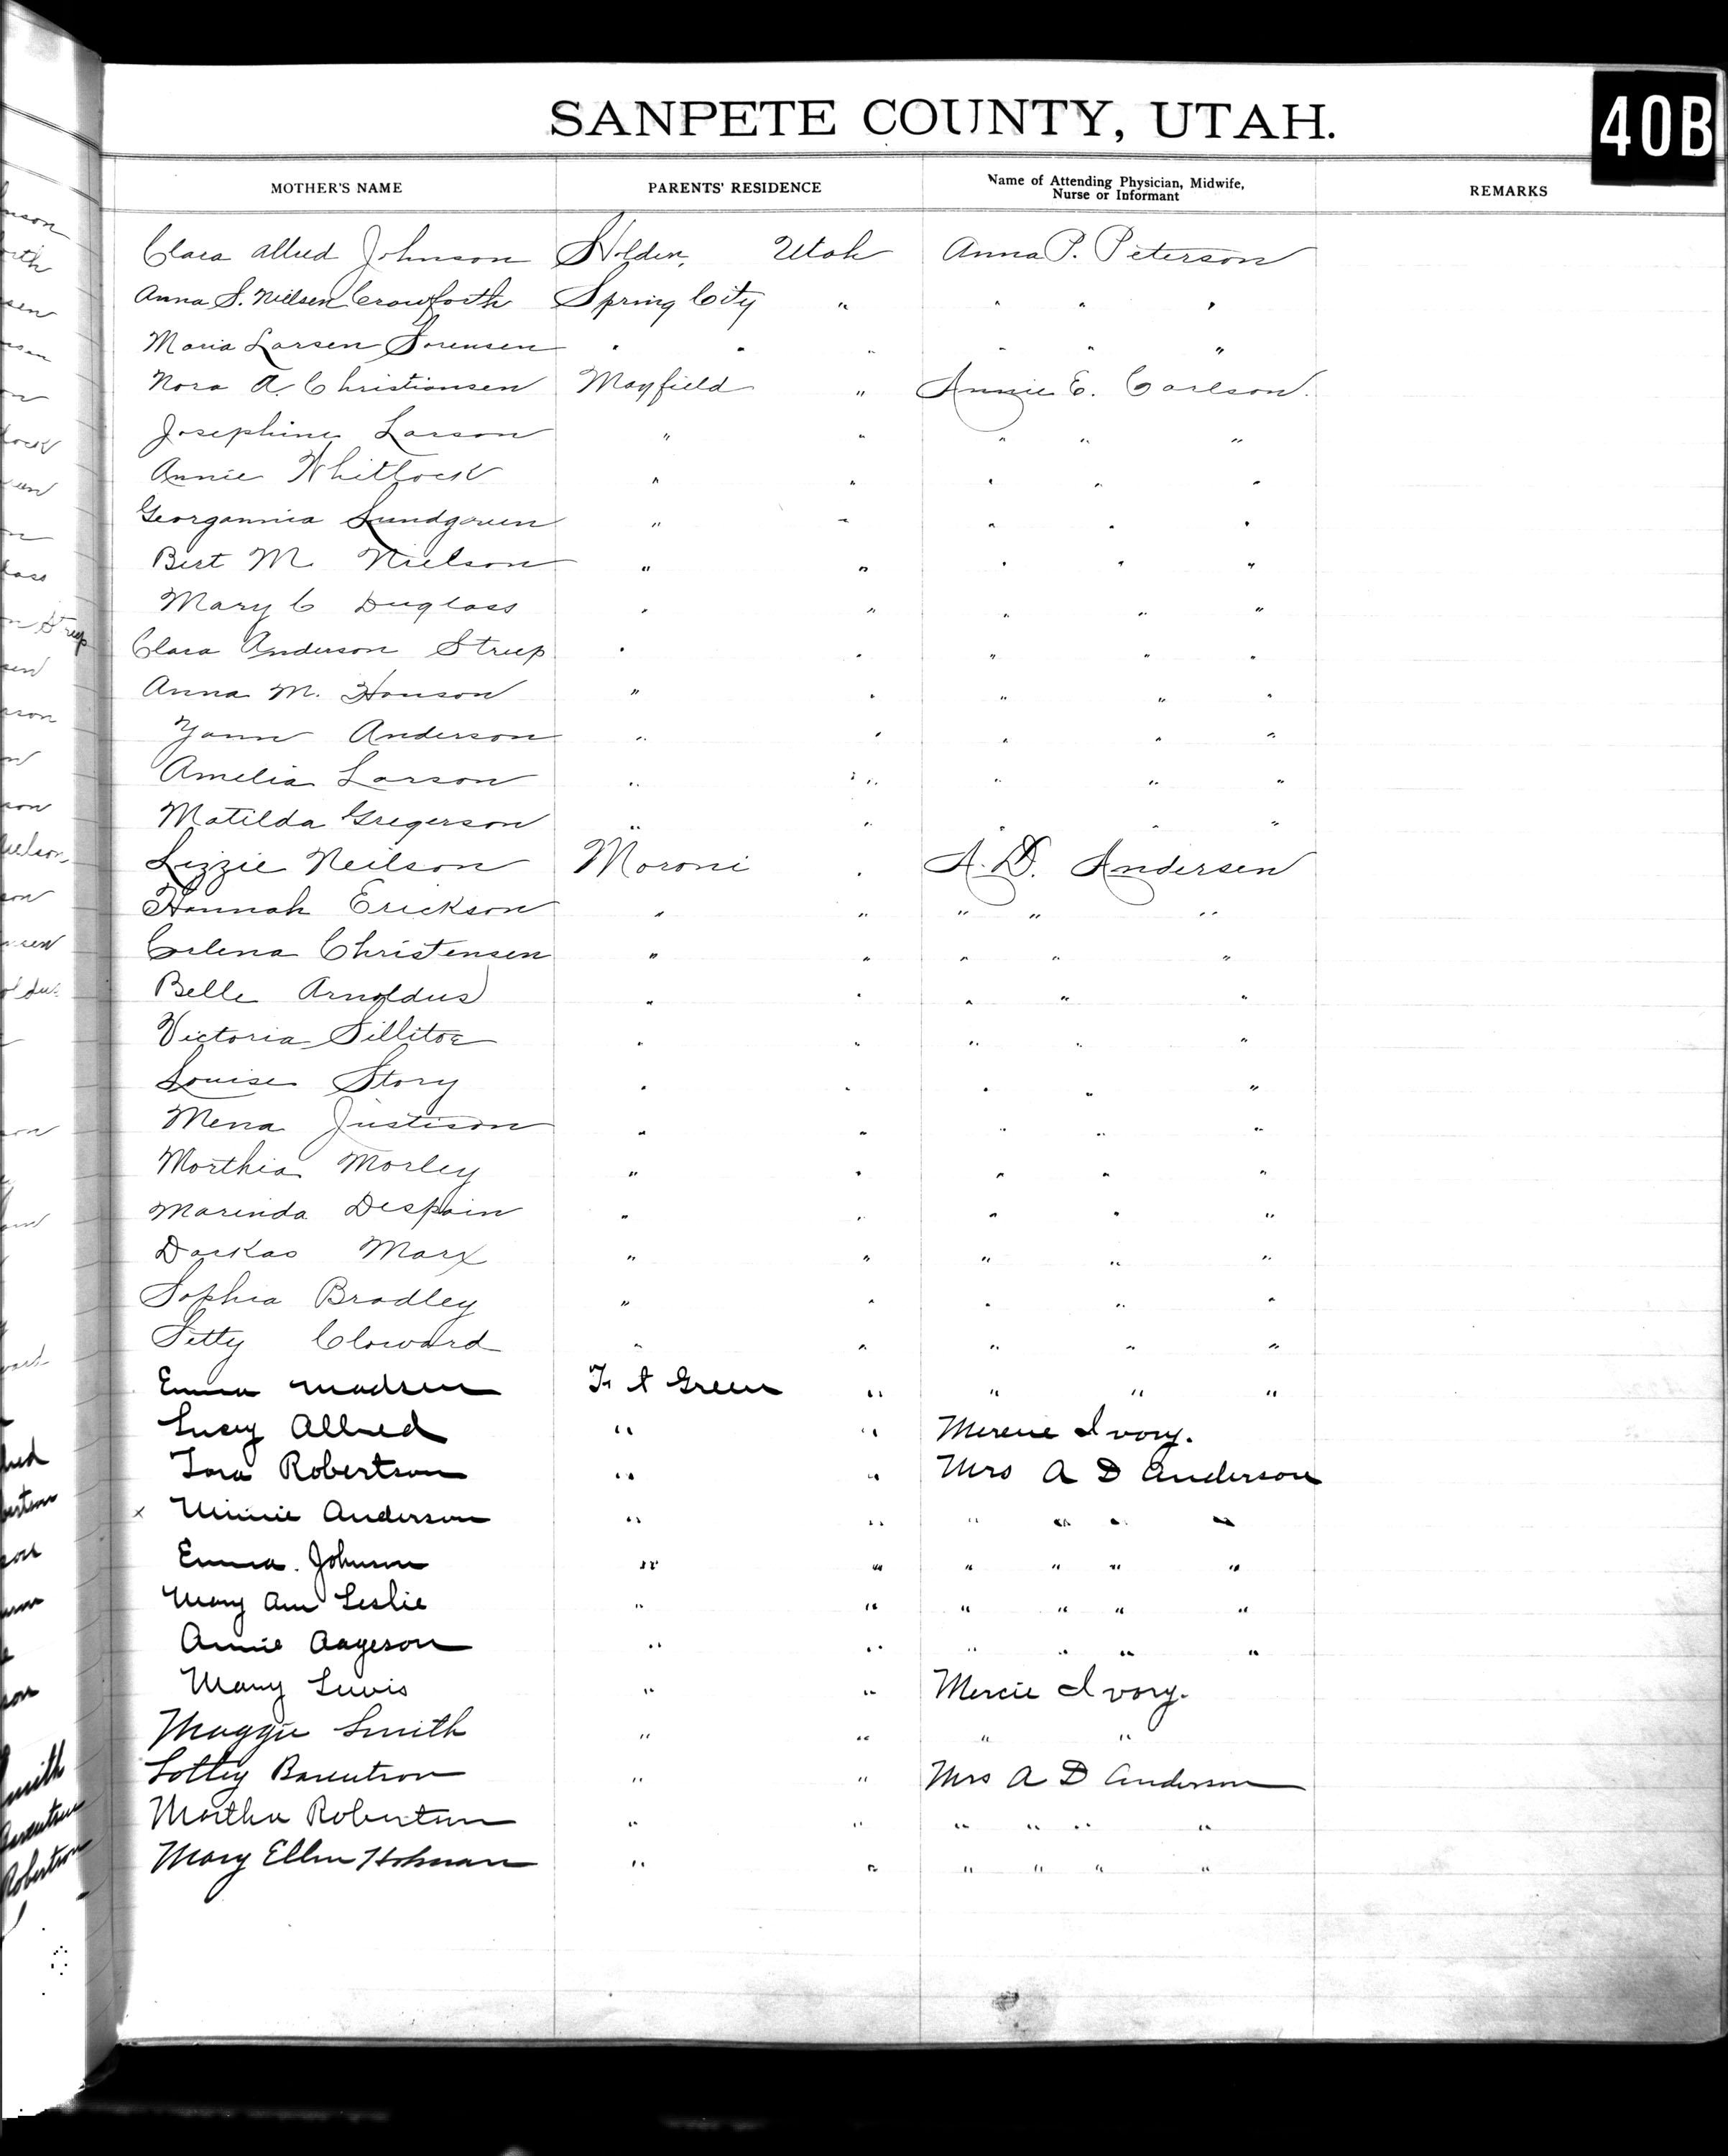 SANPETE COUNTY, UTAH.
40B
MOTHER'S NAME PARENTS' RESIDENCE Name of Attending Physician, Midwife, Nurse or Informant REMARKS
Clara Allred Johnson Holden, Utah Anna P. Peterson
Anna S. Nielsen Crowforth Spring City " " " "
Maria Larsen Sorensen " " " " " "
Nora A. Christiansen Mayfield " Annie E. Carlson.
Josephine Larson " " " " "
Annie Whitlock " " " " "
Georgannia Lundgreen " " " " "
Bert M Nielson " " " " "
Mary C Duglass " " " " "
Clara Anderson Streep " " " " "
Anna M. Hanson " " " " "
Anderson " " " " "
Amelia Larson " " " " "
Matilda Gregerson " " " " "
Lizzie Neilson Moroni " A. D. Andersen
Hannah Erickson " " " " "
Celena Christensen " " " " "
Belle Arnoldus " " " " "
Victoria Sillitoe " " " " "
Louise Story " " " " "
Mena Justison " " " " "
Morthia Morley " " " " "
Marinda Despain " " " " "
Dorkas Marx " " " " "
Sophia Bradley " " " " "
Letty Cloward " " " " "
Emma Madsen Ft Green " " " "
Lucy Allred " " Mercie Ivory.
Robertson " " Mrs A D Anderson
x Minnie Anderson " " " " " "
Emma. Johnson " " " " " "
Mary Ann Leslie " " " " " "
Annie Aageson " " " " " "
Mary Lewis " " Mercie Ivory.
Maggie Smith " " " "
Lottey Barentson " " Mrs A D Anderson
Martha Robertson " " " " " "
Mary Ellen Holman " " " " " "